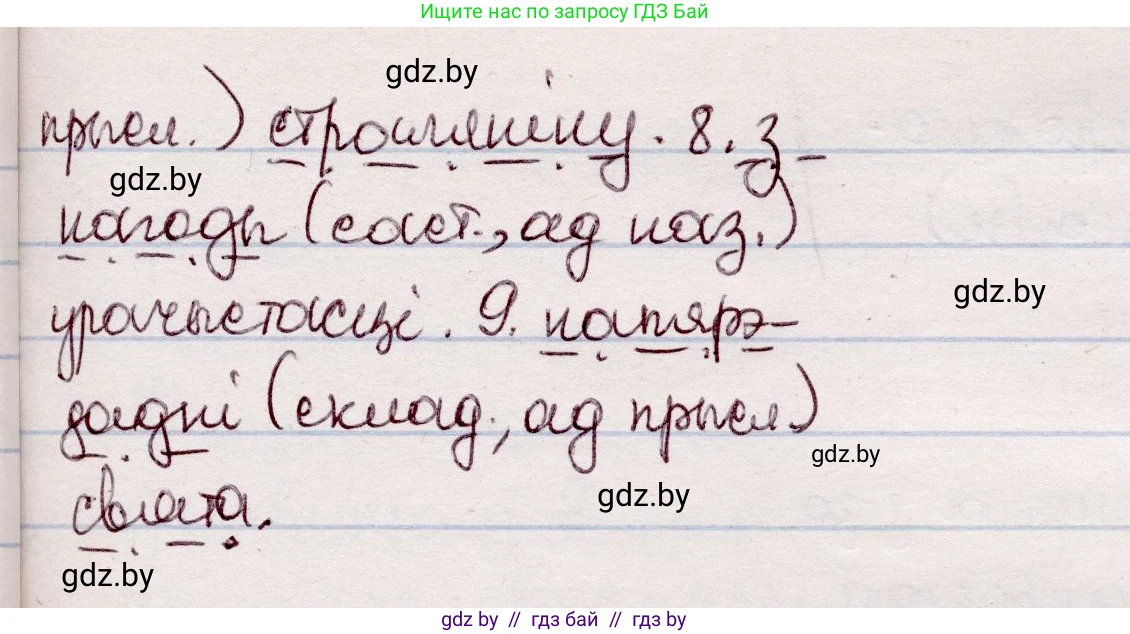 Ищите нас по запросу ГДЗ Бай
gdz.by
прысл.) страшэнну. 8. з -
gdz.by
нагоды (саст., ад наз.)
gdz.by
урачыстасці. 9. напярэ-
дадні (склад., ад прысл.)
gdz.by
gdz.by
свята.
gdz.by
gdz by // гдз бай // гдз by